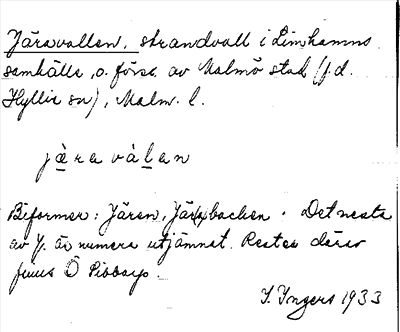 Järavallen, strandvall i Limhamns
samhälle, o. förs. av Malmö stad (f.d.
Hyllie sn), Malm. l.
jära válen
Biformer: Jären, Järabacken. Det mesta
av J. är numera utjämnat. Rester därav
finns Ö Sibbarp.
I. Ingers 1933